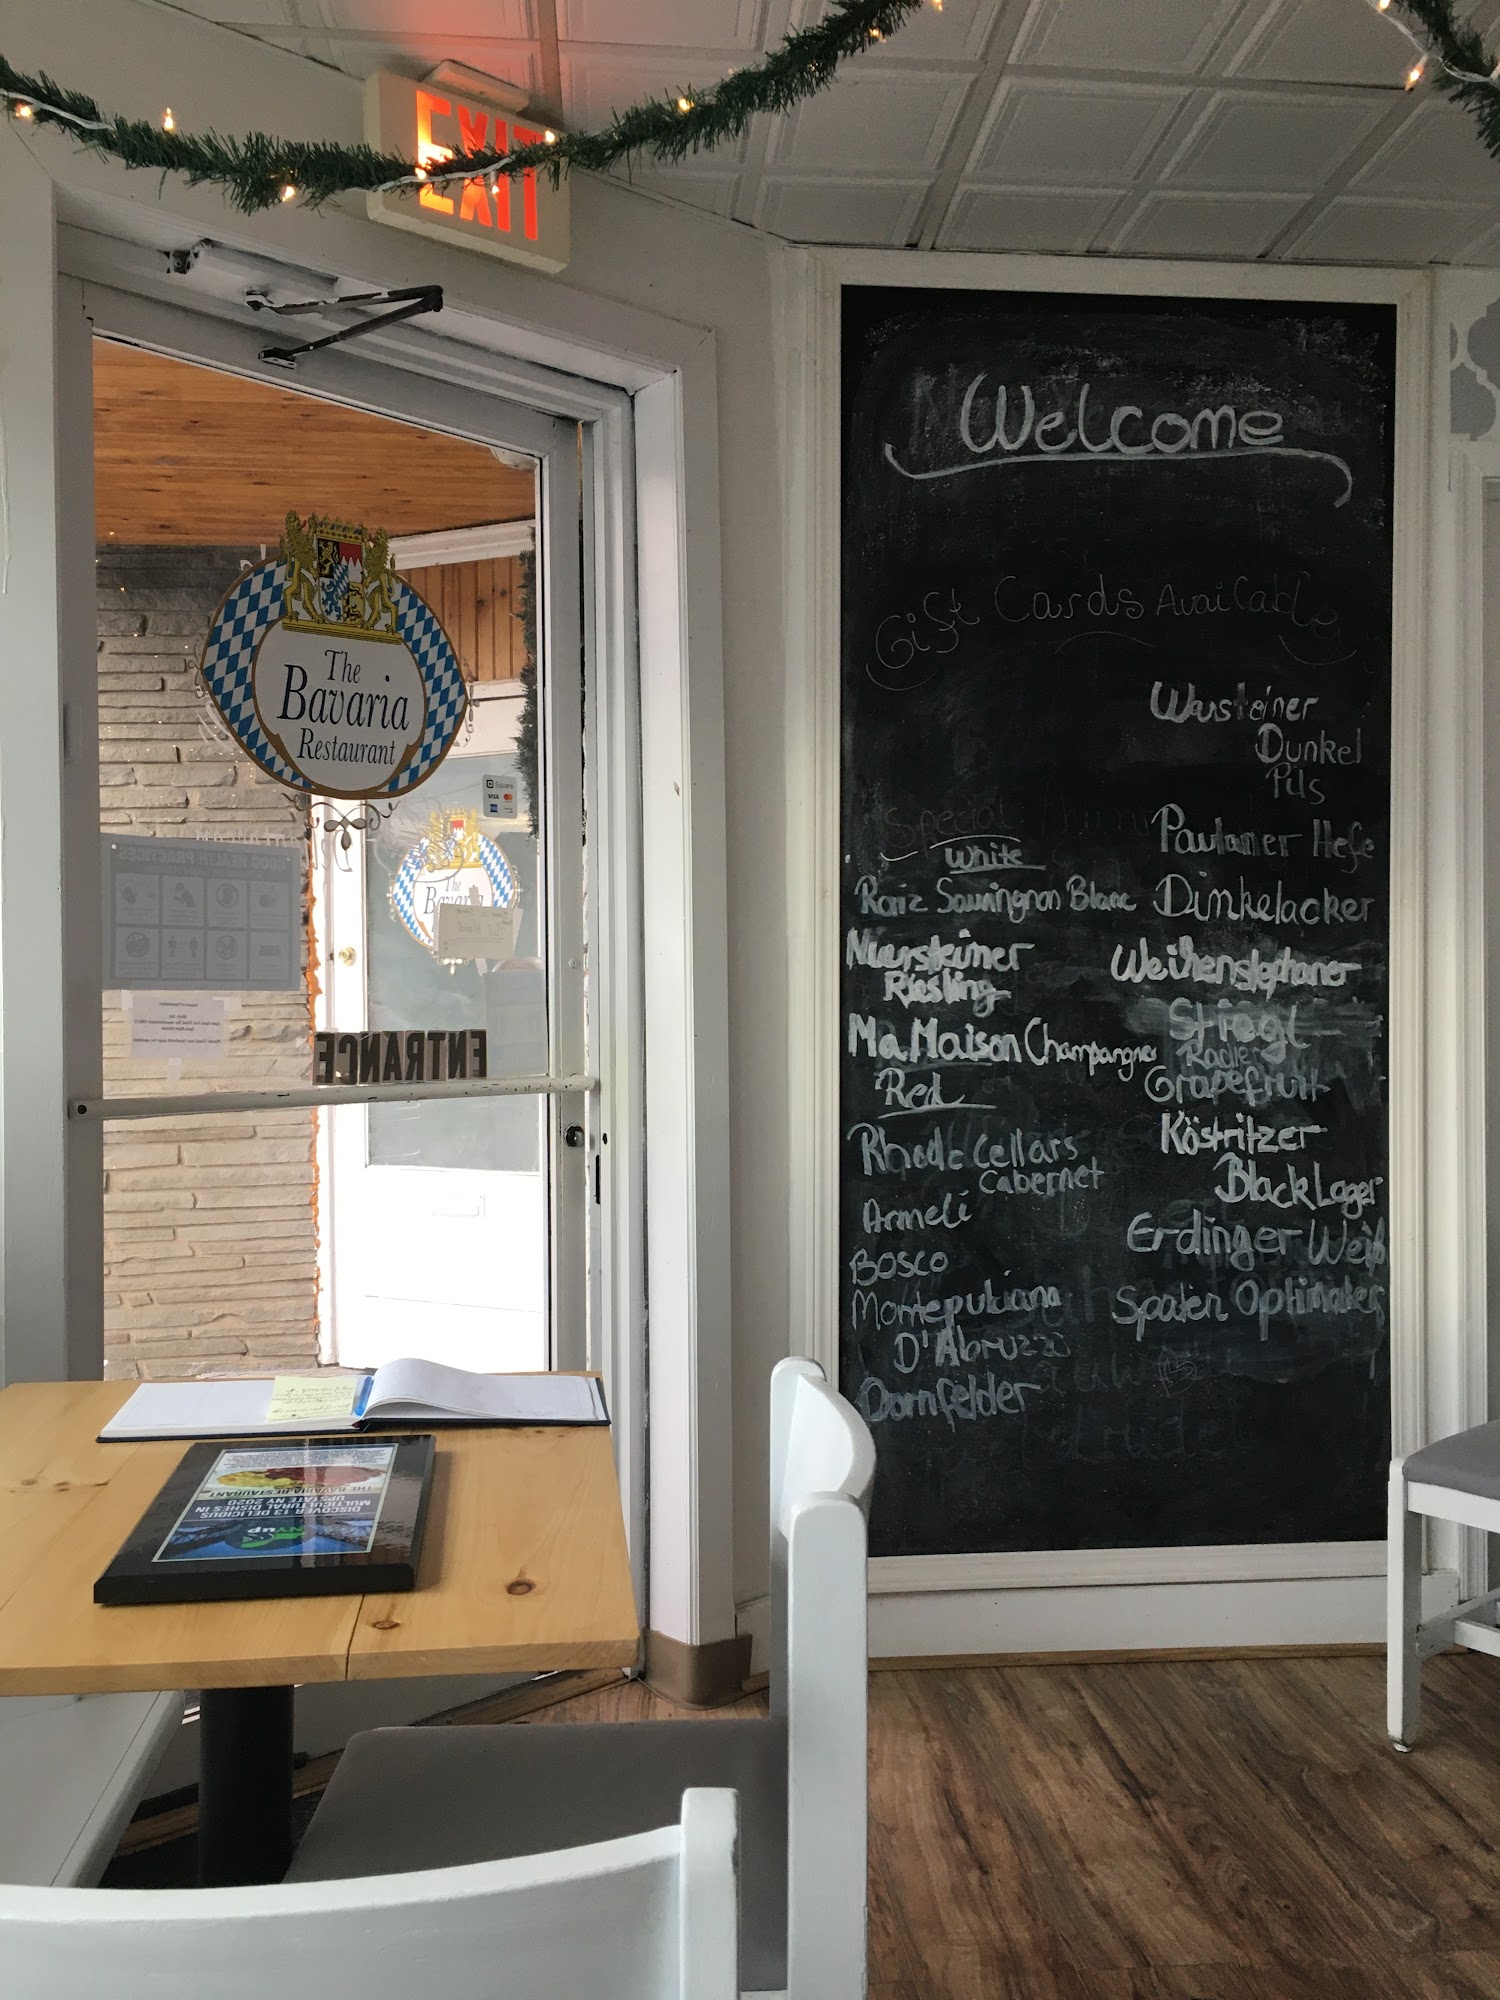 EXIT
The
Bavaria
Restaurant
Square
VISA
The
Bavaria
GOOD HEALTH PRACTICES
ENTRANCE
Welcome
Gift Cards Available
Special
White
Rariz Sauvingnon Blanc
Niersteiner
Riesling
Ma Maison Champangner
Red
Rhode Cellars
Cabernet
Armeli
BOSCO
Montepulciano
D'Abruzzo
Dornfelder
Warsteiner
Dunkel
Pils
Paulaner Hefe
Dinkelacker
Weihenstephaner
Stiegl
Radler
Grapefruit
Köstritzer
Black Lager
Erdinger Weiß
Spaten Optimator
NYUP
DISCOVER 13 DELICIOUS
MULTICULTURAL DISHES IN
UPSTATE NY 2020
THE BAVARIA RESTAURANT